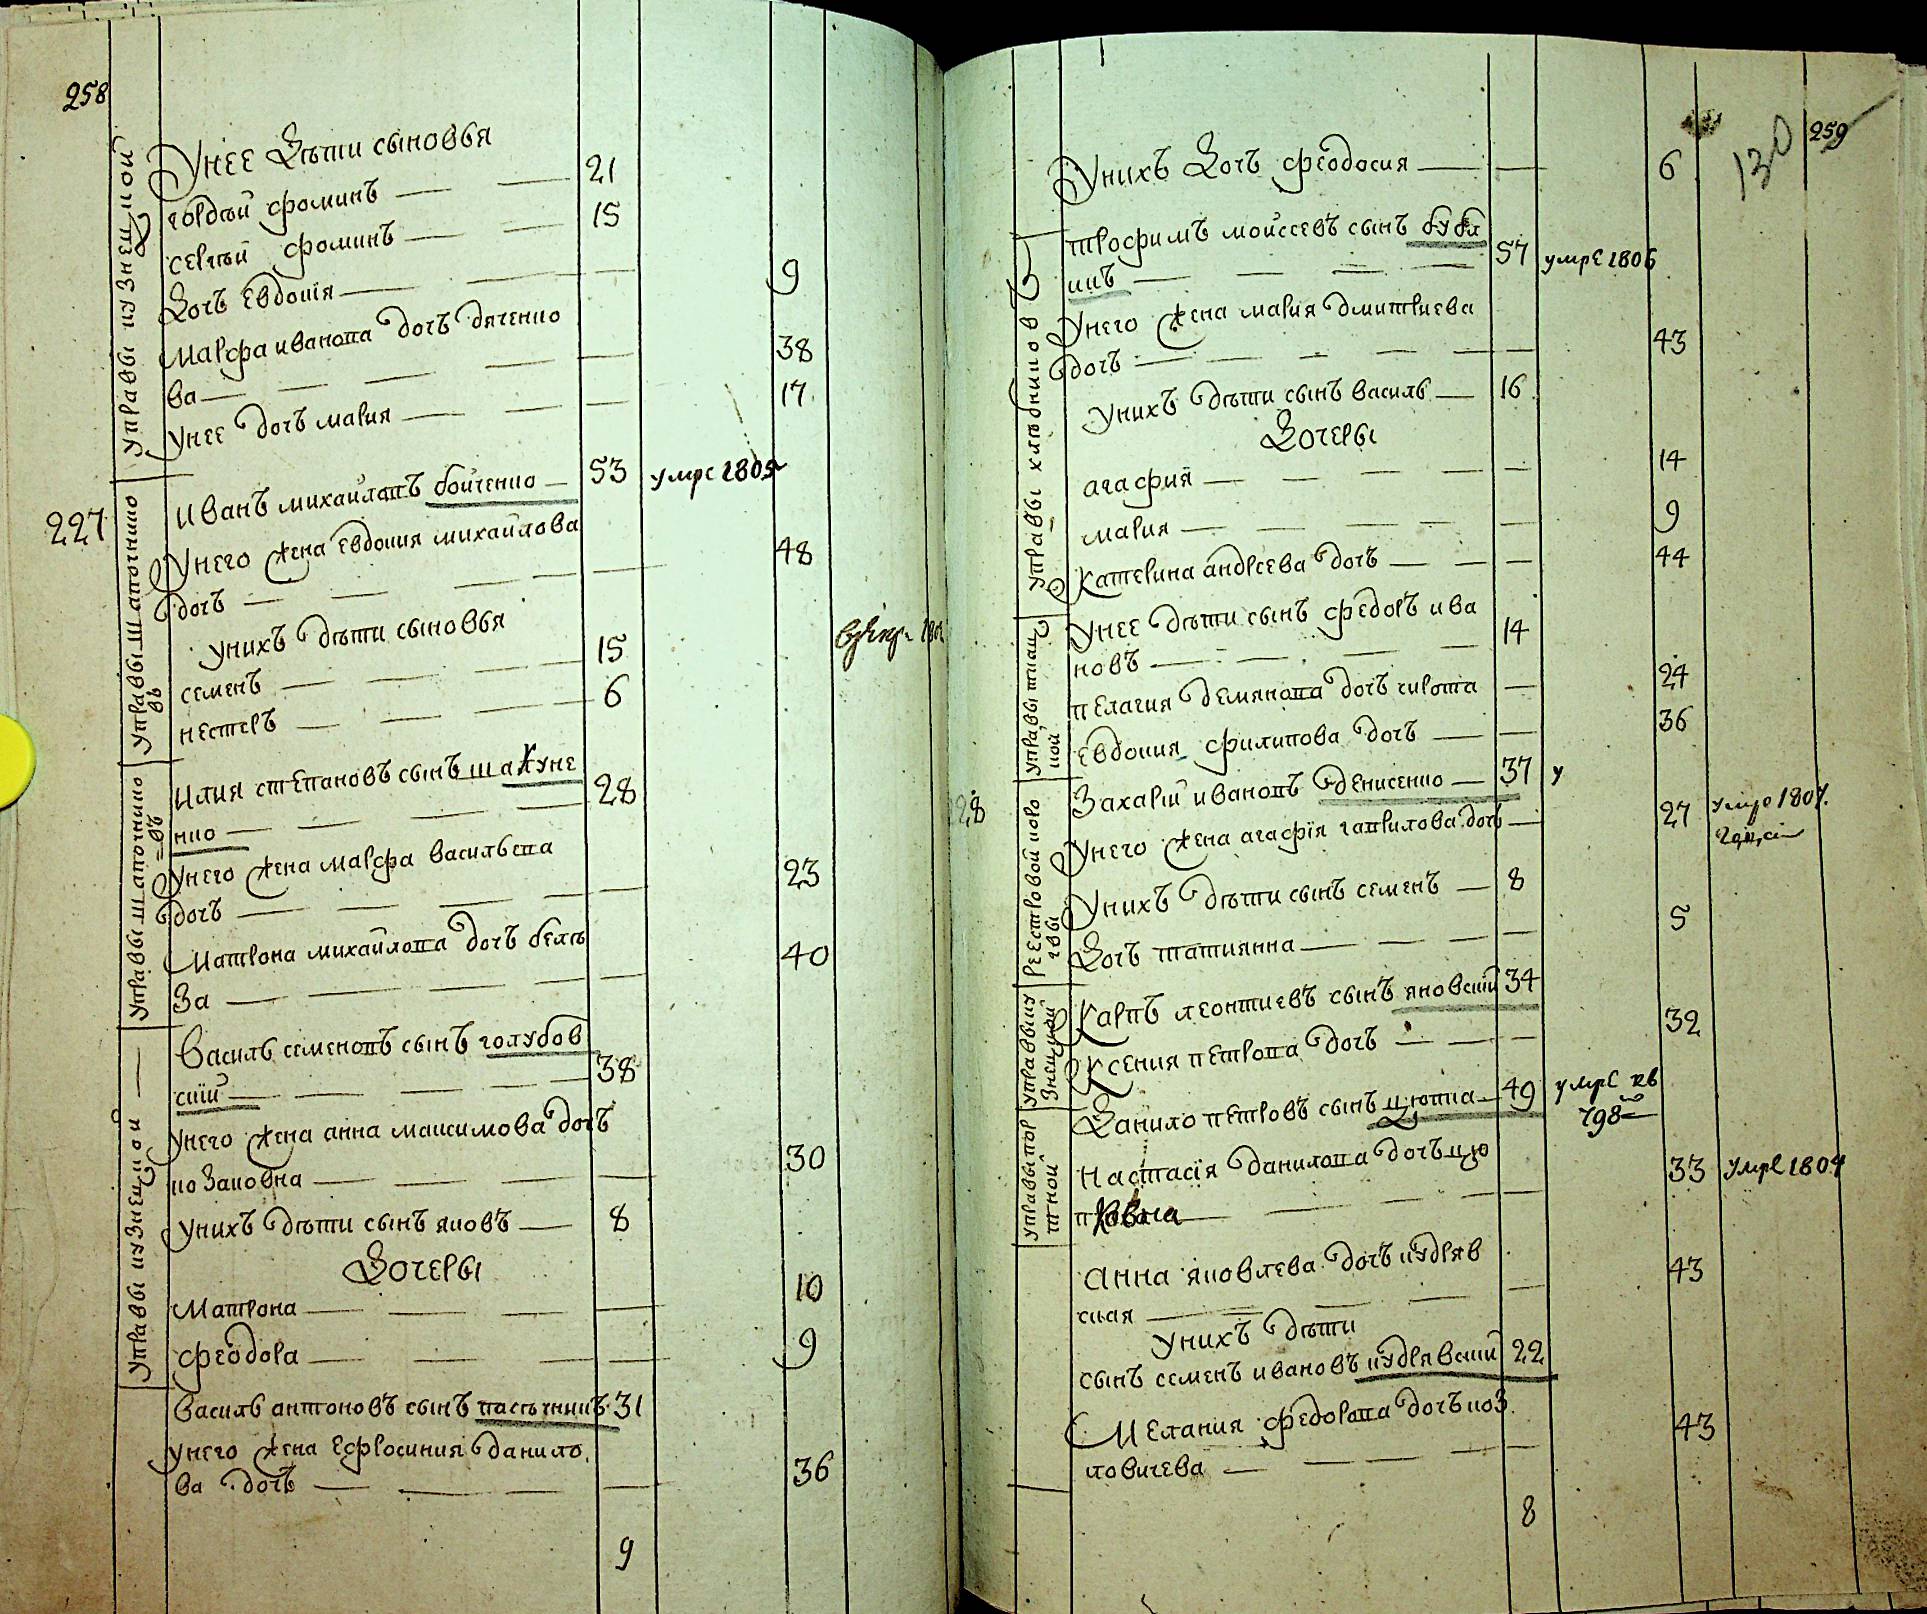 258
Управы кузнецкой
Унее Дѣти сыновья
гордѣй фоминъ — 21
сергѣй фоминъ — 15
Дочъ Евдокія — 9
Марфа иванова дочъ дяченко
ва — 38
Унее дочъ мария — 17
227
Управы шапочнико
въ
Иванъ михайловъ бойченко — 53 умре 1805
Унего жена Евдокия михайлова
дочъ — 48
Унихъ дѣти сыновья
семенъ — 15
нестеръ — 6
Управы шапочнико
въ
Илия степановъ сынъ шахуне
нко — 28
Унего жена марфа васильева
дочъ — 23
Матрона михайлова дочъ белѣ
За — 40
Управы кузнецкой
Василь семеновъ сынъ голубов
скій — 38
Унего жена анна максимова дочъ
козаковна — 30
Унихъ дѣти сынъ яковъ — 8
Дочеры
Матрона — 10
феодора — 9
Василь антоновъ сынъ пасѣчникъ 31
Унего жена Ефросиния данило
ва дочъ — 36
9
259
130
Унихъ Дочъ феодосия — 6
Управы хлѣбниковъ
трофимъ моисеевъ сынъ бубл
икъ — 57 умре 1806
Унего жена мария дмитриева
дочъ — 43
Унихъ дѣти сынъ василь — 16
Дочеры
агафия — 14
мария — 9
Катерина андреева дочъ — 44
Управы ткац
кой
Унее дѣти сынъ федоръ ива
новъ — 14
пелагия демянова дочъ сирота — 24
Евдокия филипова дочъ — 36
228
Реестровой
Захарій ивановъ денисенко — 37 у
Унего жена агафія гаврилова дочъ — 27 умре 1807
Унихъ дѣти сынъ семенъ — 8
Дочъ татиянна — 5
Управы ку
знецкой
Карпъ леонтиевъ сынъ яновскій 34
Ксения петрова дочъ — 32
Управы пор
тной
Данило петровъ сынъ цюпка — 49 умре
798
Настасія данилова дочъ цю
пковна — 33 умре 1804
Анна яковлева дочъ кудряв
ская — 43
Унихъ дѣти
сынъ семенъ ивановъ кудрявскій 22
Мелания федорова дочъ коз
ловичева — 43
8